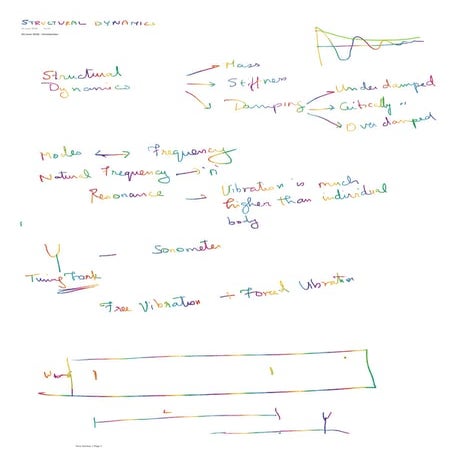 STRUCTURAL DYNAMICS
Structural
Dynamics
Mass
Stiffness
Damping
Under damped
Critically "
Over damped
Modes ↔ Frequency
Natural Frequency → 'n'
Resonance → Vibration is much
higher than individual
body
Tuning Fork
— Sonometer
Free Vibration ÷ Forced Vibration
L